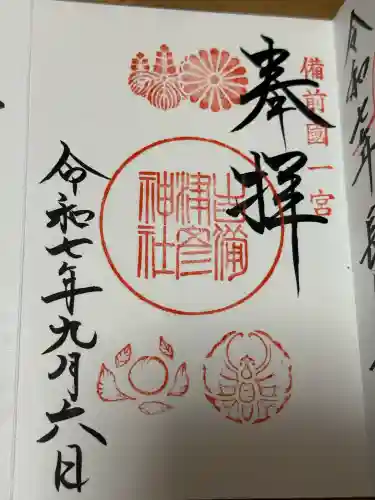 備前國一宮
奉拝
吉備
津彦
神社
令和七年九月六日
令和七年